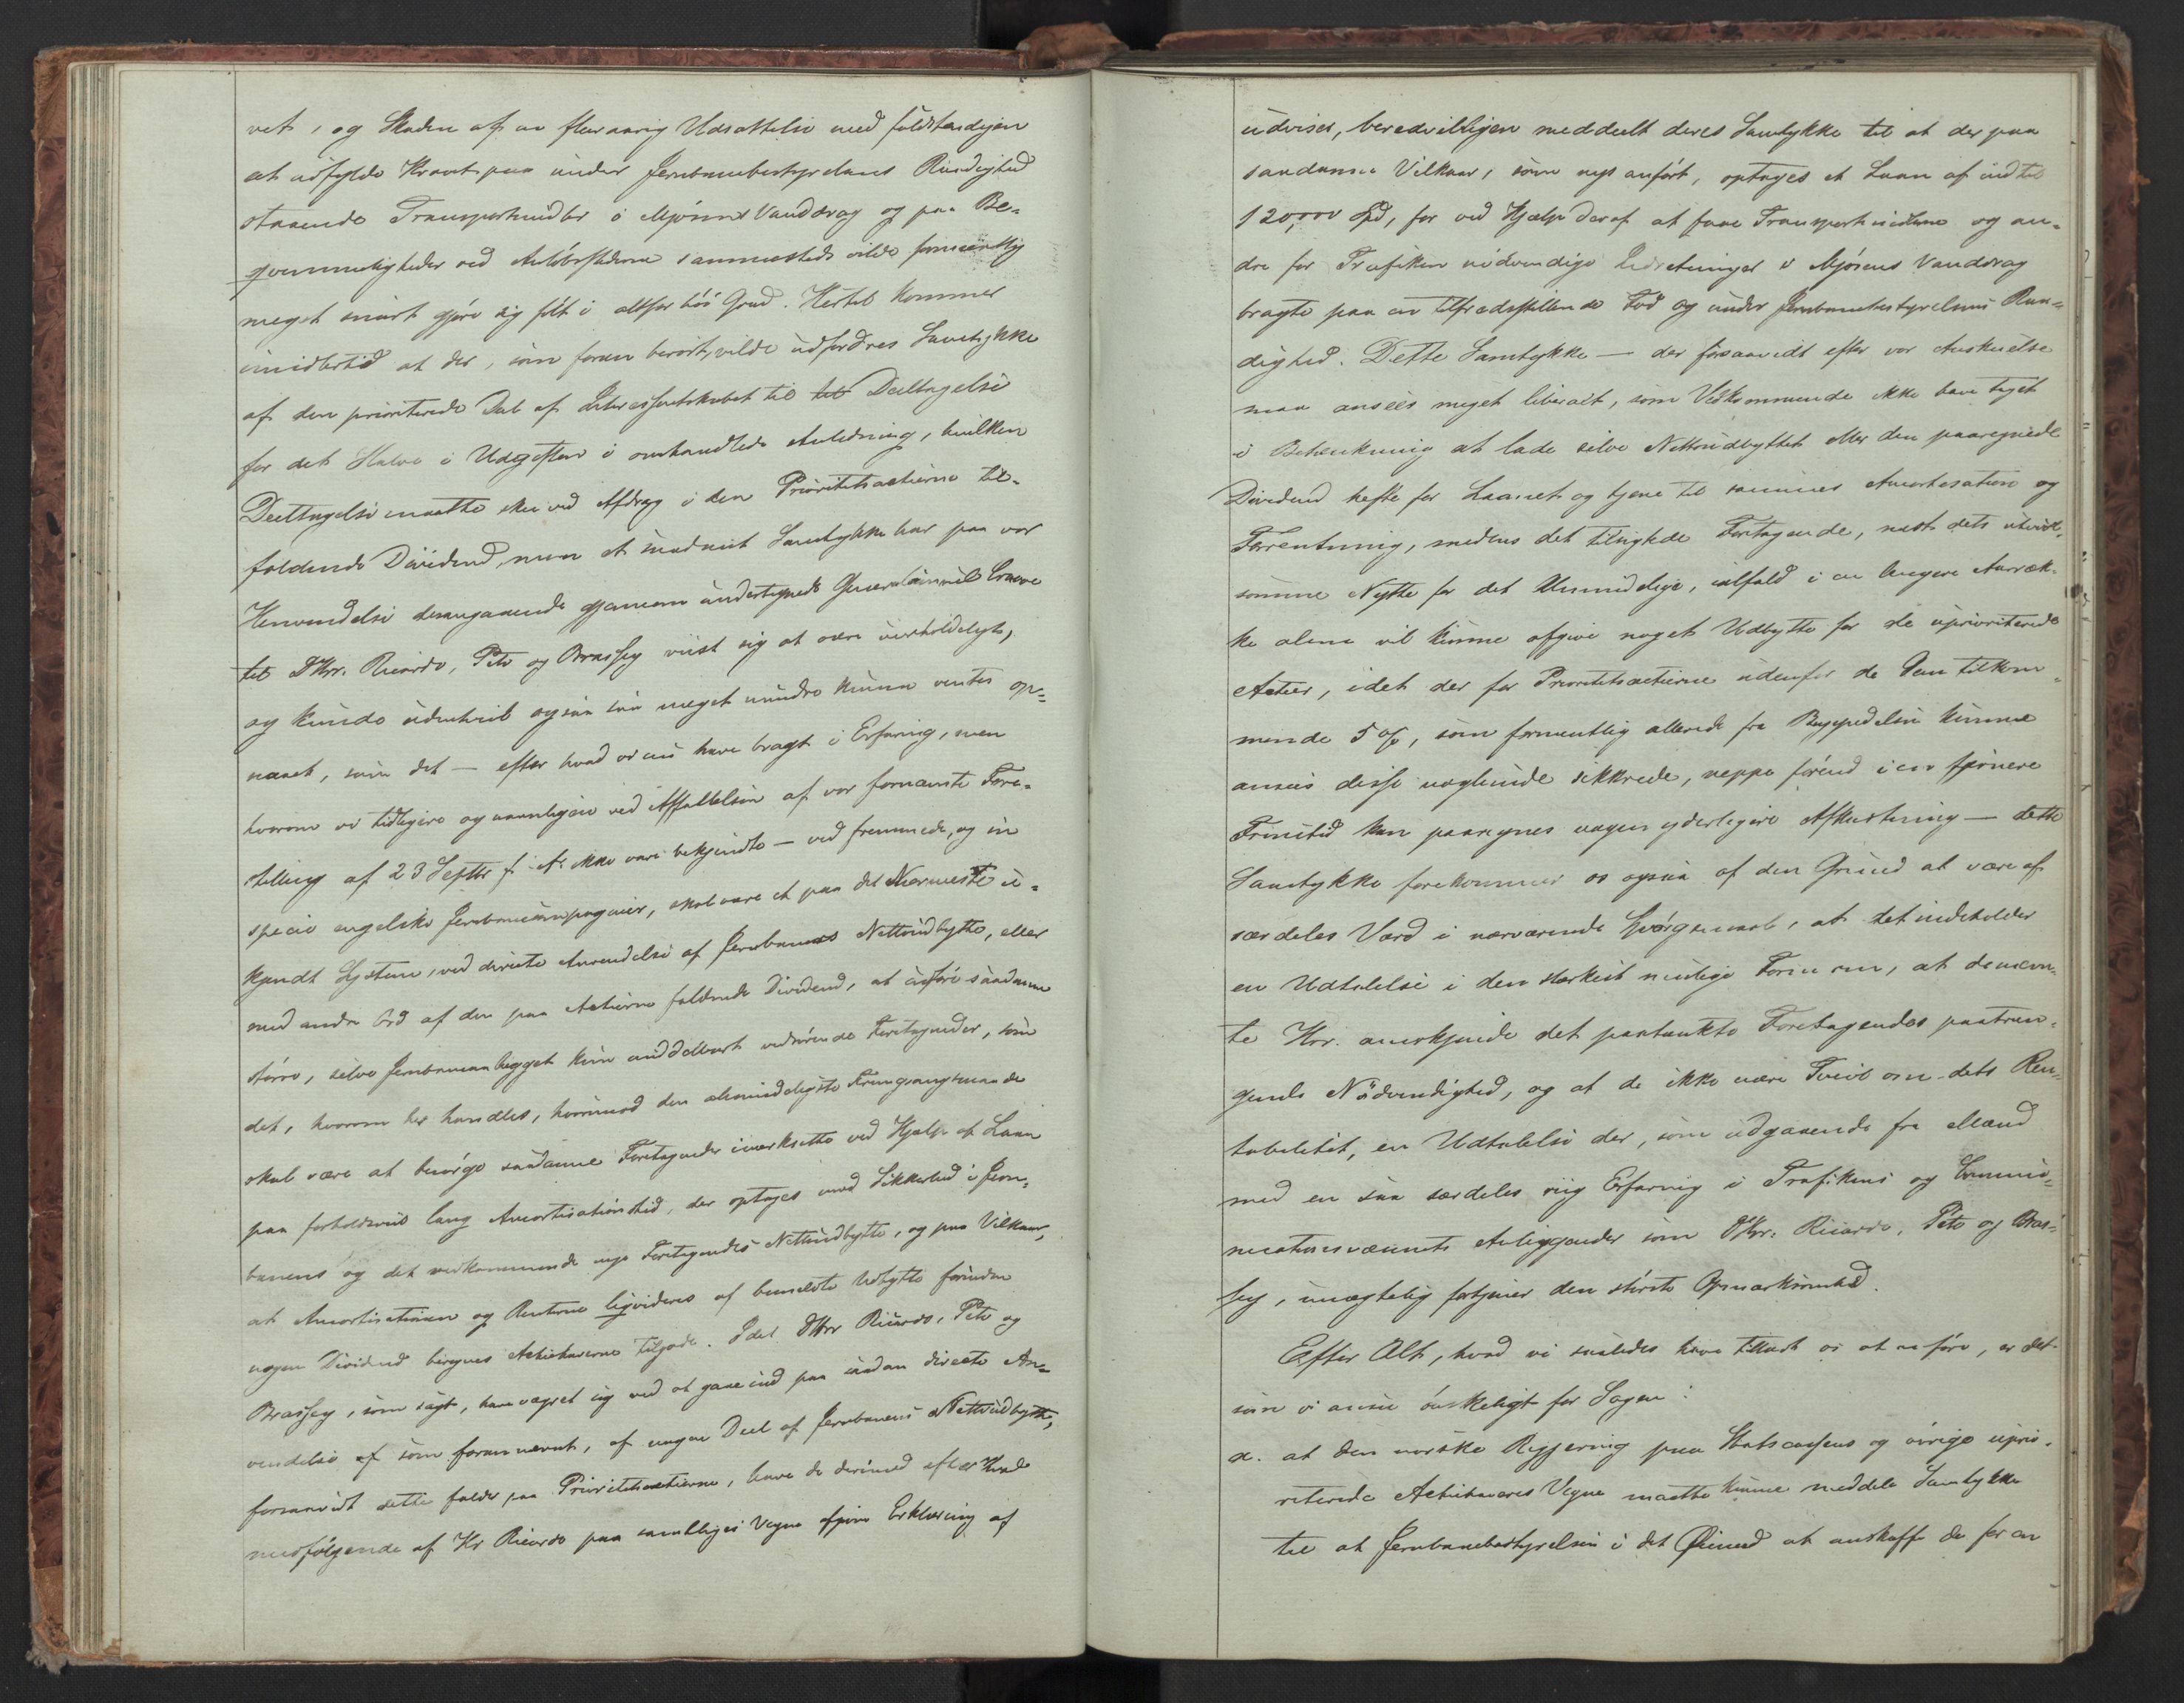 vet, og Skaden af en fleraarig Udsættelse med fuldstændigen
at udfylde Kravet paa under Jernbanebestyrelsens Raadighed
staaende Transportmidler i Mjøsens Vanddrag og paa Be-
qvemmeligheder ved Anløbsstederne sammesteds vilde formeentlig
meget snart gjøre sig følt i altfor høi Grad. Hertil kommer
imidlertid at der, som foran berørt, vilde udfordres Samtykke
af den prioriterede Del af Interessentskabet til Deeltagelse
for det Halve i Udgiften i omhandlede Anledning, hvilken
Deeltagelse maatte skee ved Afdrag i den Prioritetsactierne til-
faldende Dividend, men et saadant Samtykke har paa vor
Henvendelse desangaaende gjennem undertegnede Generalconsul Crowe
til DHrr. Ricardo, Peto og Brassey viist sig at være uerholdeligt,
og kunde udentvivl ogsaa saa meget mindre kunne ventes op-
naaet, som det — efter hvad vi nu have bragt i Erfaring, men
hvorom vi tidligere og navnligen ved Affattelsen af vor fornævnte Fore-
stilling af 23 Septbr f. A. ikke vare bekjendte — ved fremmede, og in
specie engelske Jerbanecompagnier, skal være et paa det Nærmeste u-
kjendt System, ved directe Anvendelse af Jernbanens Nettoudbytte, eller
med andre Ord af den paa Actierne faldende Dividend, at udføre saadanne
større, selve Jernbaneanlægget kun middelbart vedrørende Foretagender, som
det, hvorom her handles, hvorimod den almindeligste Fremgangsmaade
skal være at besørge saadanne Foretagender iværksatte ved Hjælp af Laan
paa forholdsviis lang Amortisationstid, der optages mod Sikkerhed i Jern-
banens og det vedkommende nye Foretagendes Nettoudbytte, og paa Vilkaar,
at Amortisationen og Renterne liqvideres af bemeldte Udbytte førinden
nogen Dividend beregnes Actiehaverne tilgode. Idet DHrr Ricardo, Peto og
Brassey, som sagt, have vægret sig ved at gaae ind paa saadan directe An-
vendelse af som foran nævnt, af nogen Deel af Jernbanens Nettoudbytte,
forsaavidt dette falder paa Prioritetsactierne, have de derimod efter hvad
medfølgende af Hr Ricardo paa samtliges Vegne afgivne Erklæring af
udviser, beredvilligen meddeelt deres Samtykke til at der paa
saadanne Vilkaar, som nys anført, optages et Laan af indtil
120,000 Spd, for ved Hjælp deraf at faae Transportmidlerne og an-
dre for Trafiken nødvendige Indretninger i Mjøsens Vanddrag
bragte paa en tilfredsstillende Fod og under Jernbanebestyrelsens Raa-
dighed. Dette Samtykke — der forsaavidt efter vor Anskuelse
maa ansees meget liberalt, som Vedkommende ikke have taget
i Betænkning at lade selve Nettoudbyttet eller den paaregnede
Dividend hefte for Laanet og tjene til sammes Amortisation og
Forrentning, medens det tilsigtede Foretagende, næst dets utvivl-
somme Nytte for det Almindelige, ialfald i en længere Aarræk-
ke alene vil kunne afgive noget Udbytte for de uprioriterede
Actier, idet der for Prioritetsactierne udenfor de dem tilkom-
mende 5 %, som formentlig allerede fra Begyndelsen kunne
ansees disse nogenlunde sikkrede, neppe førend i en fjernere
Fremtid kan paaregnes nogen yderligere Afkastning — dette
Samtykke forekommer os ogsaa af den Grund at være af
særdeles Værd i nærværende Spørgsmaal, at det indeholder
en Udtalelse i den stærkest mulige Form om, at de nævn-
te Hrr. anerkjende det paatænkte Foretagendes paatræn-
gende Nødvendighed, og at de ikke nære Tvivl om dets Ren-
tabilitet, en Udtalelse der, som udgaaende fra Mænd
med en saa særdeles riig Erfaring i Trafikens og Commu-
nicationsvæsenets Anliggender som DHrr. Ricardo, Peto og Bras-
sey, unægtelig fortjener den største Opmærksomhed.
Efter Alt, hvad vi saaledes have tilladt os at anføre, er det
som vi ansee ønskeligt for Sagen:
a. at den norske Regjering paa Statscassens og øvrige uprio-
riterede Actiehaveres Vegne maatte kunne meddele Samtykke
til at Jernbanebestyrelsen i det Øiemed at anskaffe de for en